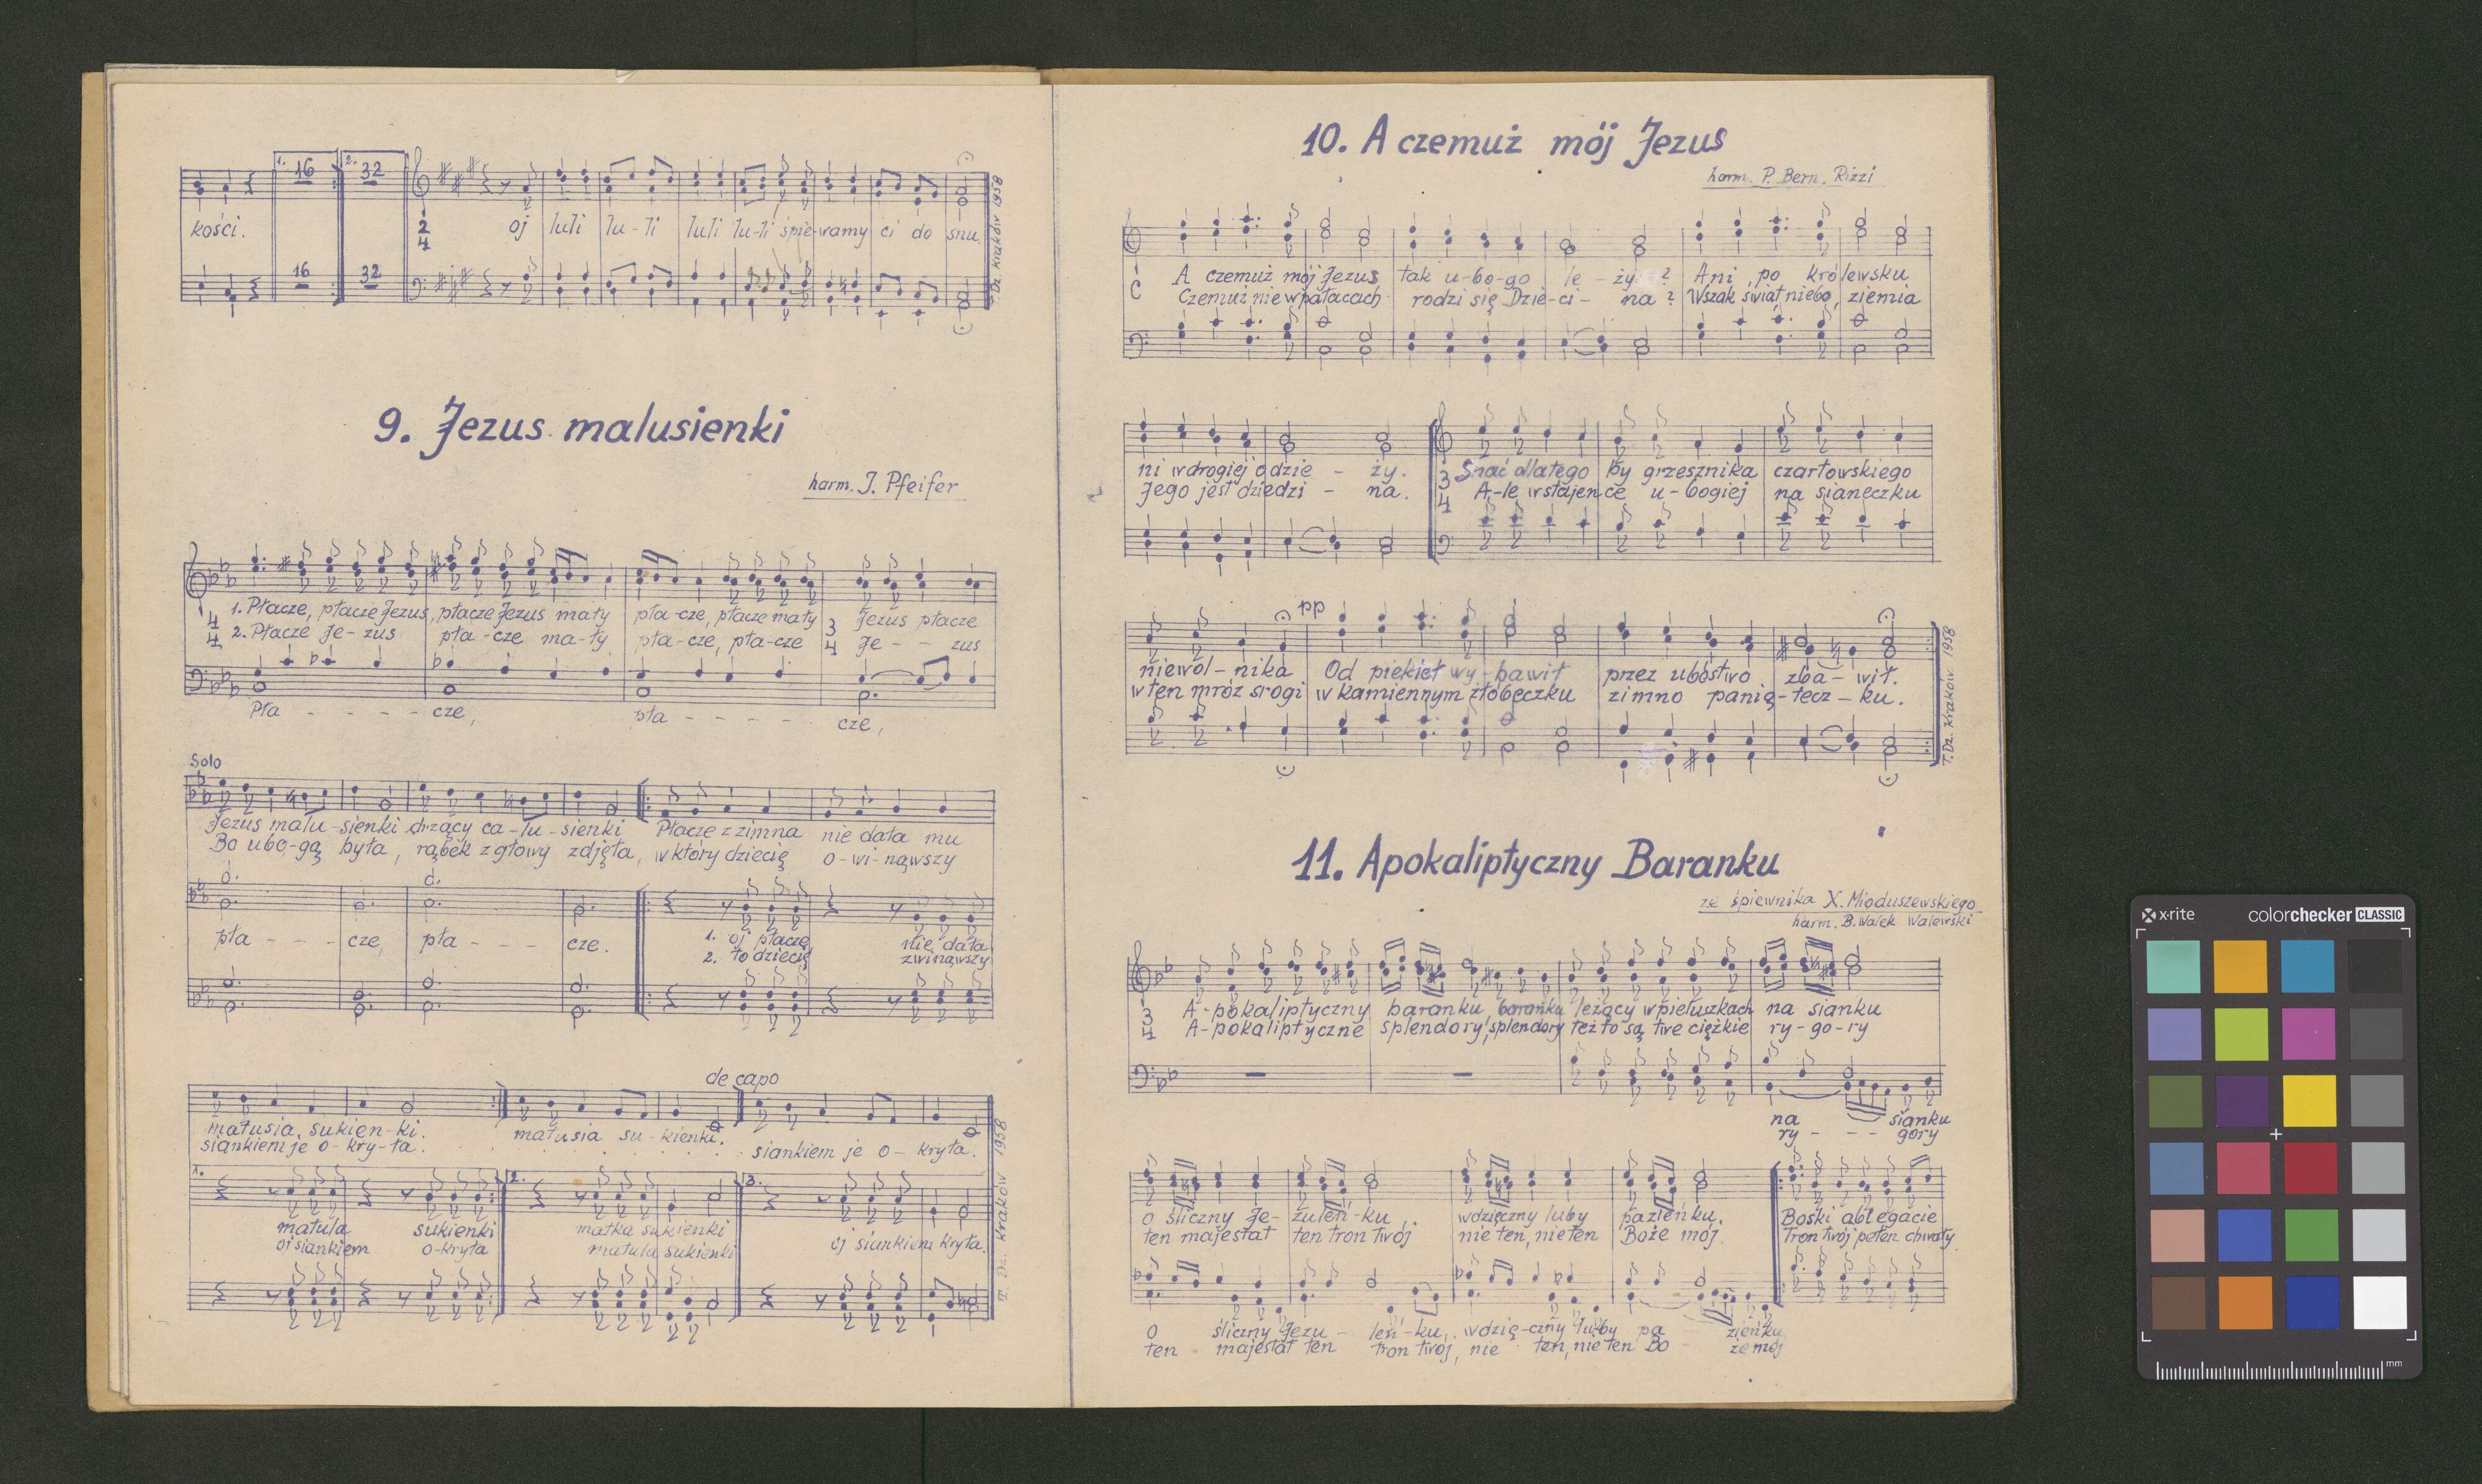 1. 16 2. 32
kości. 2 4 oj luli lu-li luli lu-li śpie-wamy ci do snu.
16 32
T. Dz. Kraków 1958
9. Jezus malusienki
harm. J. Pfeifer
4 4 1. Płacze, płacze Jezus, płacze Jezus mały pła-cze, płacze mały 3 4 Jezus płacze
2. Płacze Je-zus pła-cze ma-ły pła-cze, pła-cze Je - - zus
Pła - - - - cze, pła - - - - - cze,
Solo
Jezus malu-sienki drżący ca-lu-sienki Płacze z zimna nie dała mu
Bo ubo-gą była, rąbek z głowy zdjęła, w który dziecię o-wi-nąwszy
pła - - - cze, pła - - - cze. 1. oj płacze nie dała
2. to dziecię zwinąwszy
de capo
matusia, sukien-ki. matusia su-kienki.
siankiem je o-kry-ła. siankiem je o-kryła.
1. 2. 3.
matula sukienki matka sukienki
oj siankiem o-kryła matula sukienki oj siankiem kryła.
T. Dz. Kraków 1958
10. A czemuż mój Jezus
harm. P. Bern. Rizzi
C A czemuż mój Jezus tak u-bo-go le-ży? Ani po królewsku
Czemuż nie w pałacach rodzi się Dzie-ci-na? Wszak świat niebo, ziemia
ni w drogiej odzie-ży. 3 4 Snać dlatego by grzesznika czartowskiego
Jego jest dziedzi-na. A-le w stajence u-bogiej na sianeczku
pp
niewol-nika Od piekieł wy-bawił przez ubóstwo zba-wił.
w ten mróz srogi w kamiennym żłóbeczku zimno panię-tecz-ku.
T. Dz. Kraków 1958
11. Apokaliptyczny Baranku
ze śpiewnika X. Mioduszewskiego
harm. B. Walek Walewski
3 4 A-pokaliptyczny baranku, baranku leżący w pieluszkach na sianku
A-pokaliptyczne splendory, splendory też to są twe ciężkie ry-go-ry
na sianku
ry - - - gory
o śliczny Je-zuleń-ku, wdzięczny luby pazieńku. Boski ablegacie
ten majestat ten tron twój nie ten, nie ten Boże mój. Tron twój pełen chwały
o śliczny Jezu-leń-ku, wdzię-czny luby pa - zieńku
ten majestat ten tron twój, nie ten, nie ten Bo - że mój
x-rite colorchecker CLASSIC
mm